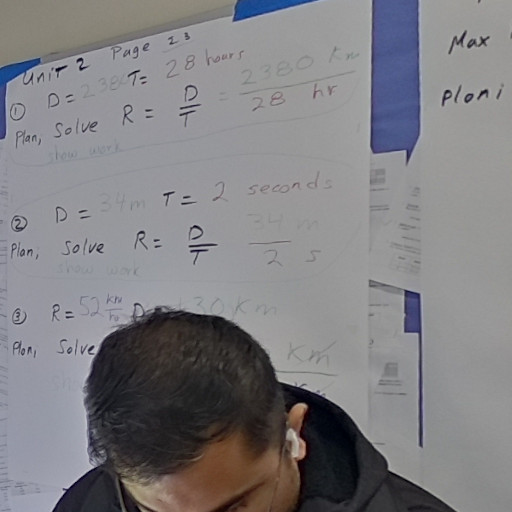 Unit 2 Page 23
① D = 2380 T = 28 hours
Plan, Solve R = D/T = 2380 Km / 28 hr
show work
② D = 34m T = 2 seconds
Plan, Solve R = D/T 34 m / 2 s
show work
③ R = 52 km/hr D 30 Km
Plan, Solve Km
Max
Ploni